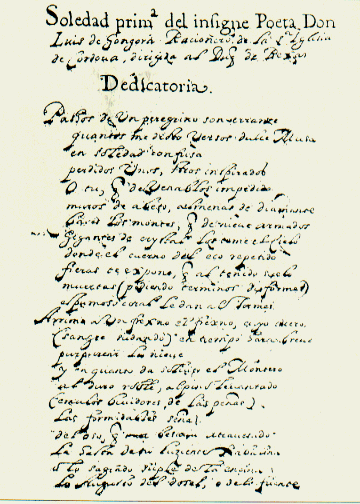 Soledad prim.ª del insigne Poeta Don
Luis de Gongora Racionero de la S.ta Yglesia
de Cordova, dirigida al Duq. de Bexar
Dedicatoria.
Passos de Un peregrino son errante
quantos me dicto versos dulce Musa
en soledad confusa
perdidos Unos, otros inspirados
O tu, q de Venablos impedido
muros de abeto, almenas de diamante
los montes, q de nieve armados
Gigantes de cristal los teme el Cielo
donde el cuerno del eco repetido
fieras te expone, q al teñido suelo
muertas (pidiendo terminos disformes)
espumoso coral le dan a Tormes
Arrima a Un frexno el frexno, cuyo acero
(sangre sudando) en tiempo hara breve
purpurear la nieve
y en quanto da el Montero
al duro roble, al pino levantado
(emulos de las peñas)
Las formidables señas
del oso, q
La de tu luziente
o lo sagrado supla de la encina
lo Augusto del dosel, o de la fuente